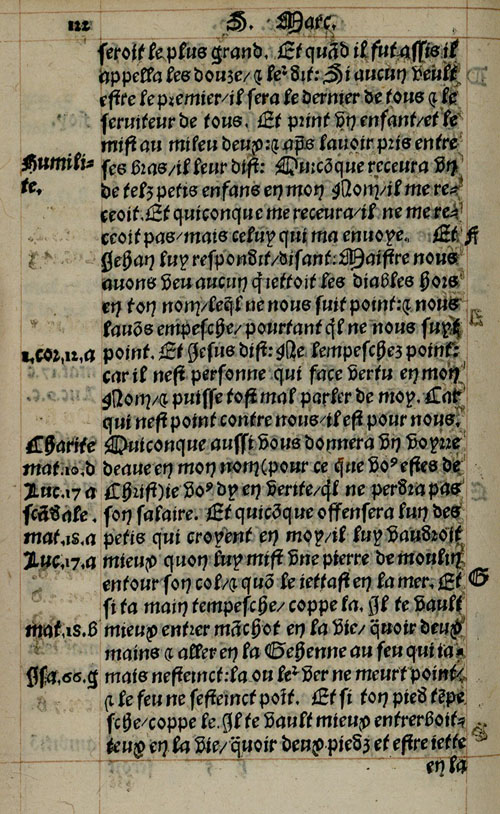 122 S. Marc.
seroit le plus grand. Et quād il fut assis il
appella les douze/ ⁊ leᷣ dit: Si aucun veult
estre le premier/il sera le dernier de tous ⁊ le
seruiteur de tous. Et print vn enfant/et le
mist au milieu deux:⁊ aps lauoir pris entre
Humili-
te.
ses bras/il leur dist: Quicōque receura vn
de telz petis enfans en mon Nom/il me re-
ceoit. Et quiconque me receura/il ne me re-
ceoit pas/mais celuy qui ma enuoye. Et F
Jehan luy respondit/disant: Maistre nous
auons veu aucun q̄ iettoit les diables hors
en ton nom/leq̄l ne nous suit point:⁊ nous
lauōs empesche/pourtant q̄l ne nous suyt
1.cor.12.a point. Et Jesus dist: Ne lempeschez point:
car il nest personne qui face vertu en mon
Nom/⁊ puisse tost mal parler de moy. Car
qui nest point contre nous/il est pour nous.
Charite Quiconque aussi vous donnera vn voyrre
mat.10.d deaue en mon nom(pour ce que voꝰ estes de
Luc.17.a Christ)ie voꝰ dy en verite/q̄l ne perdra pas
scādale. son salaire. Et quicōque offensera lun des
mat.18.a petis qui croyent en moy/il luy vauldroit
Luc.17.a mieux quon luy mist vne pierre de moulin
entour son col/⁊ quō le iettast en la mer. Et G
si ta main tempesche/coppe la. Il te vault
mat.18.b mieux entrer māchot en la vie/q̄ uoir deux
mains ⁊ aller en la Gehenne au feu qui ia-
Isa.66.g mais nesteinct:la ou leᷣ ver ne meurt point/
⁊ le feu ne sesteinct poīt. Et si ton pied tēpe
sche/coppe le. Il te vault mieux entrer boit-
teux en la vie/q̄ uoir deux piedz et estre iette
en la